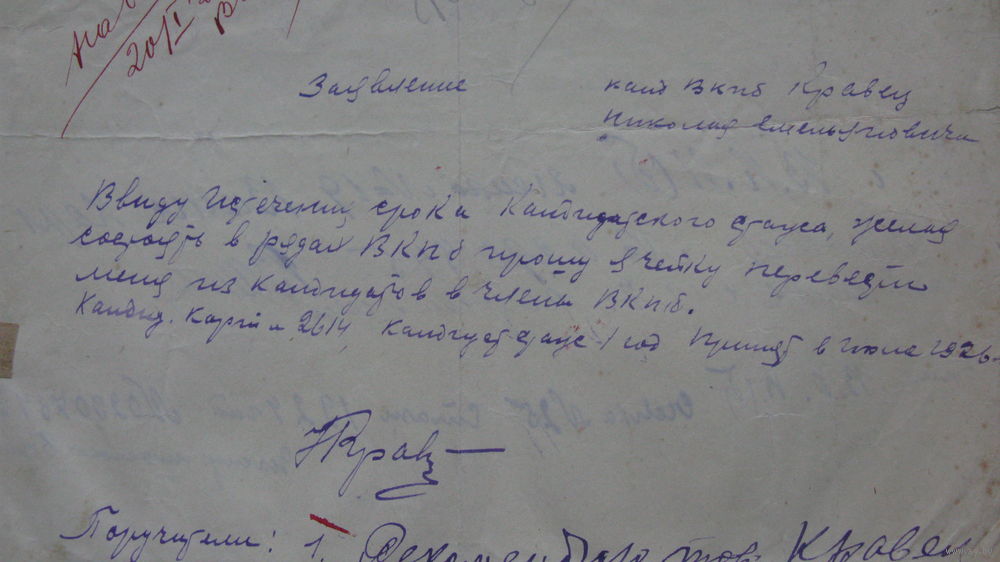 20/I
Заявление
канд ВКПб Кравец
Николая Емельяновича
Ввиду истечения срока Кандидатского стажа, желая
состоять в рядах ВКПб прошу ячейку перевести
меня из кандидатов в члены ВКПб.
Кандид. карт № 2614, кандидат стаж 1 год принят в июле 1926
НКравец
Поручители: 1. Рекомендую тов. Кравец